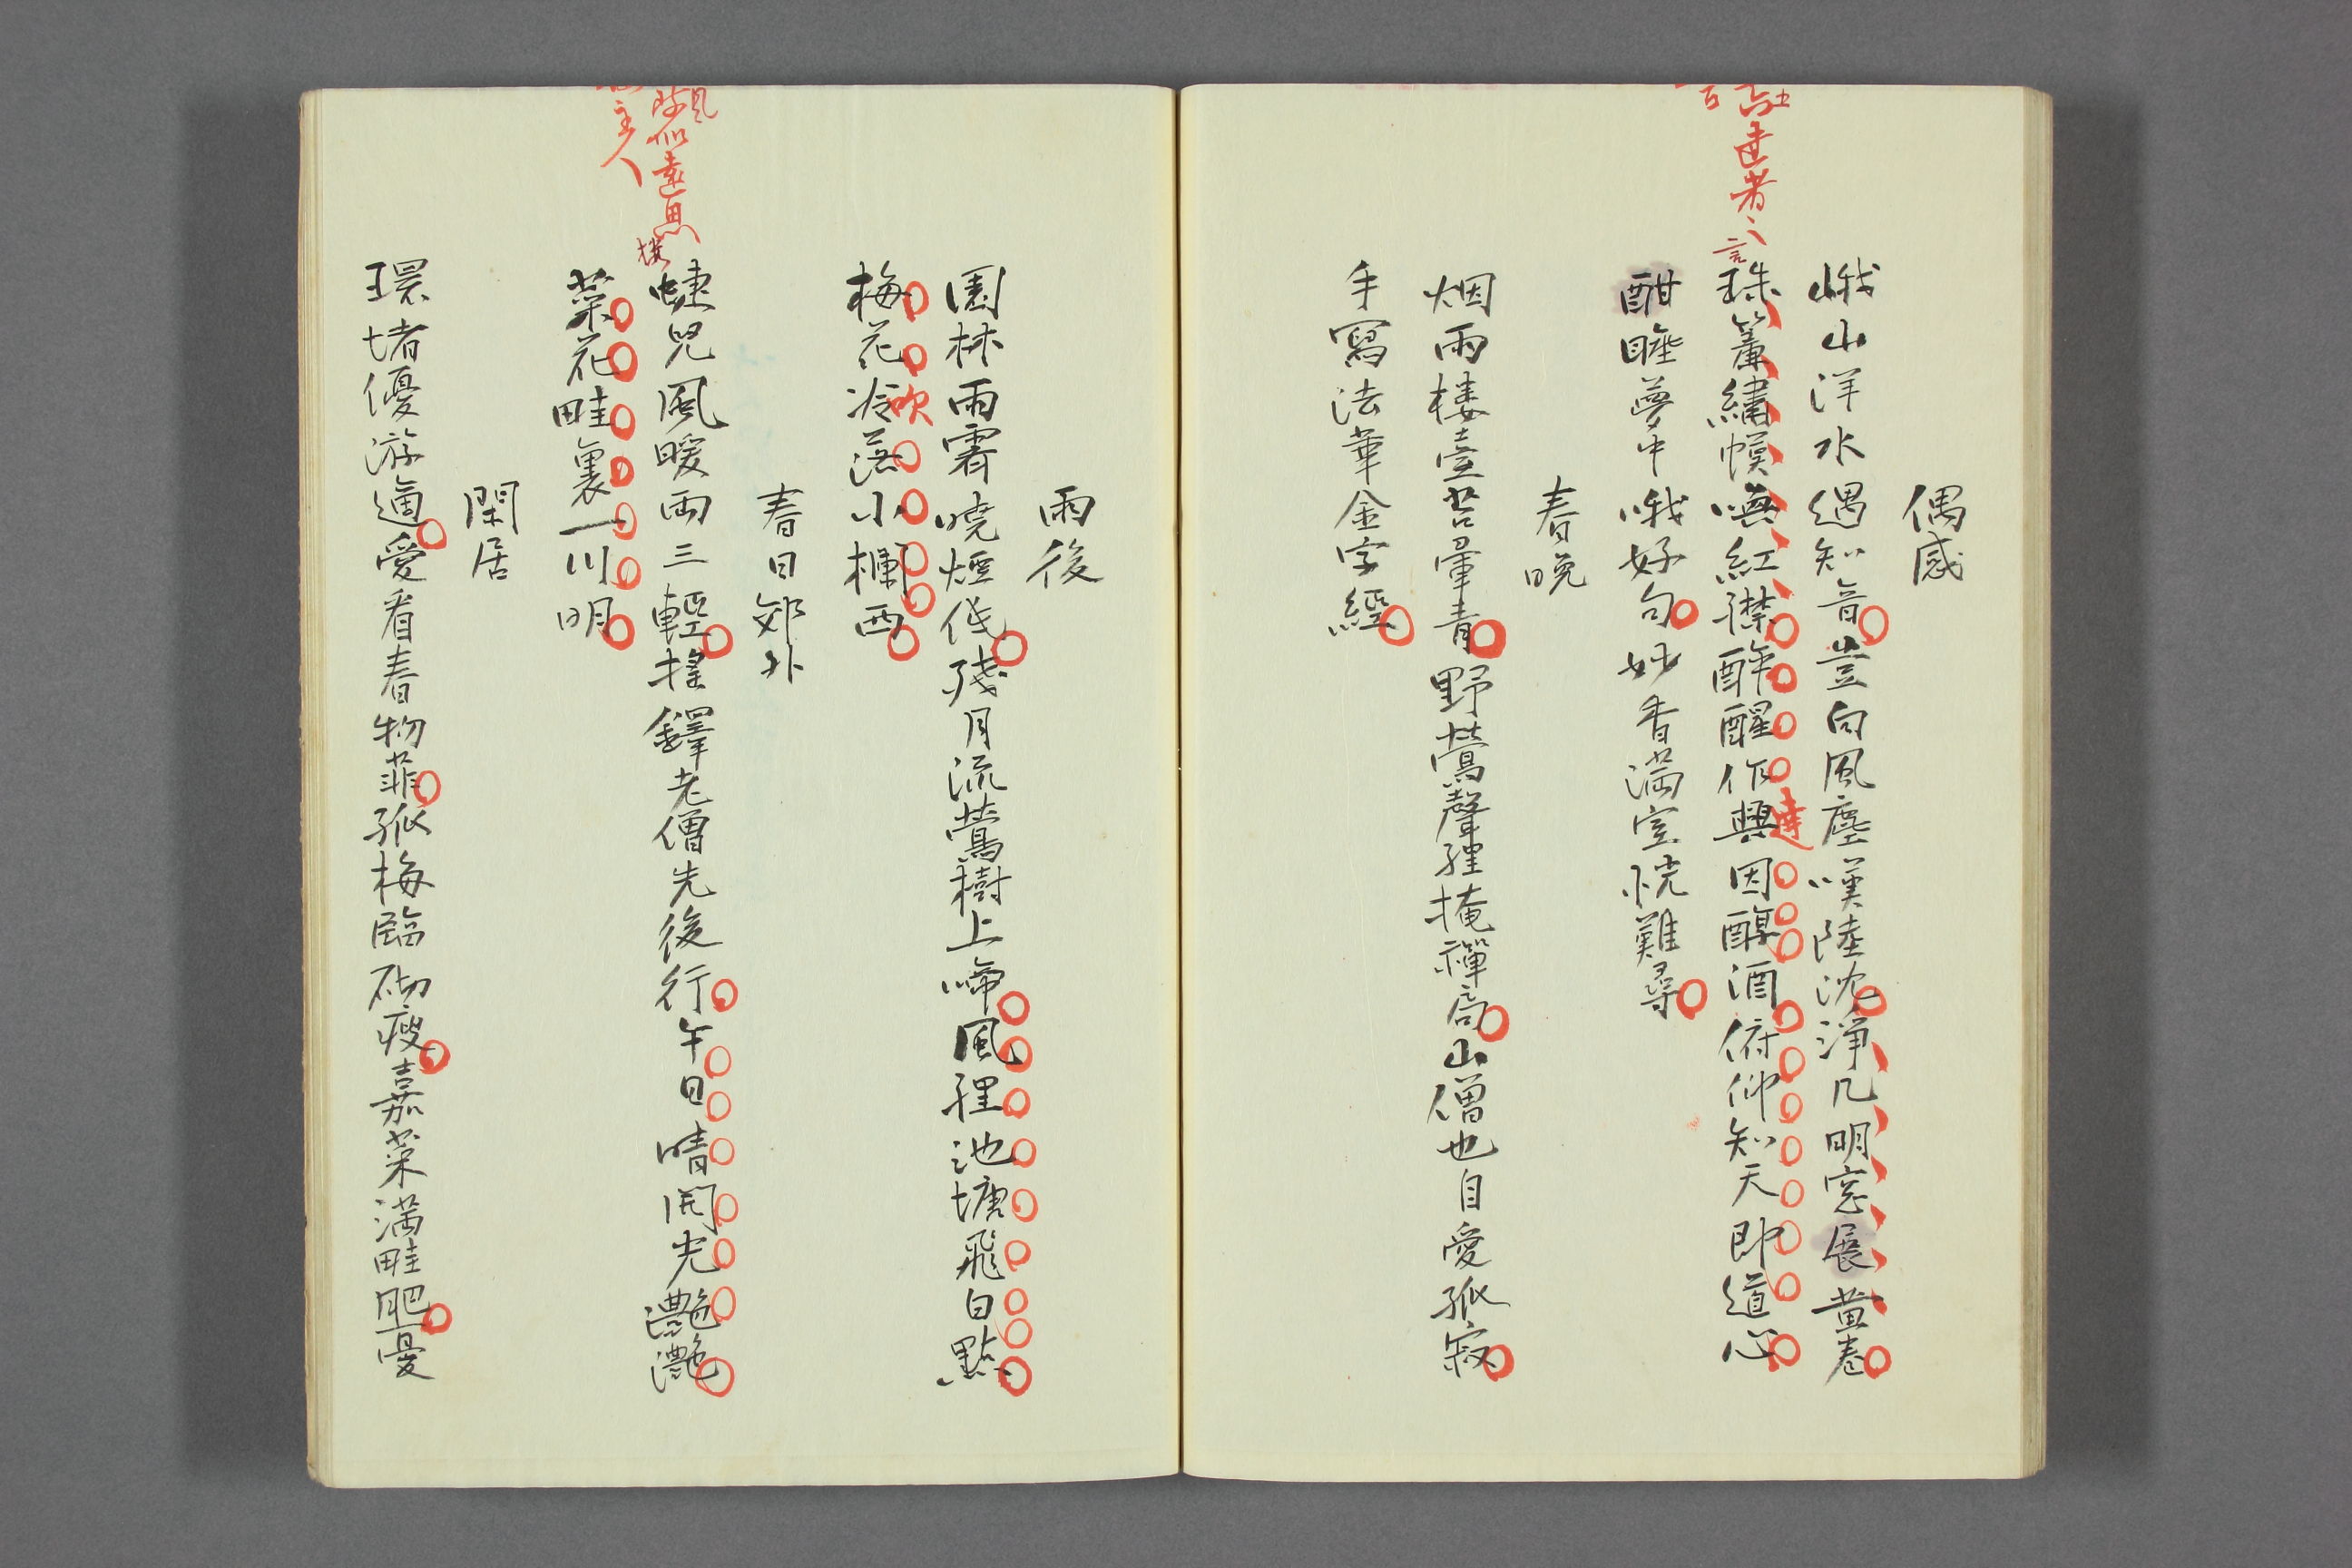 達者之言
偶感
峨山洋水遇知音豈向風塵嘆陸沈淨几明窓展黄巻
珠簾繡幙喚紅襟醉醒作興因醇酒俯仰知天即道心
達
酣睡夢中哦好句妙香滿室恍難尋
春晩
烟雨楼臺苔暈青野鶯聲裡掩禪扃山僧也自愛孤寂
手寫法華金字經
雨後
園林雨霽曉煙低殘月流鶯樹上啼風裡池塘飛白點
梅花冷落小欄西
吹
春日郊外
遠思
主人
蜨児風暖両三輕搖鐸老僧先後行午日晴開光灔灔
菜花畦裏一川明
閑居
環堵優游適愛看春物菲孤梅臨砌痩嘉菜満畦肥憂